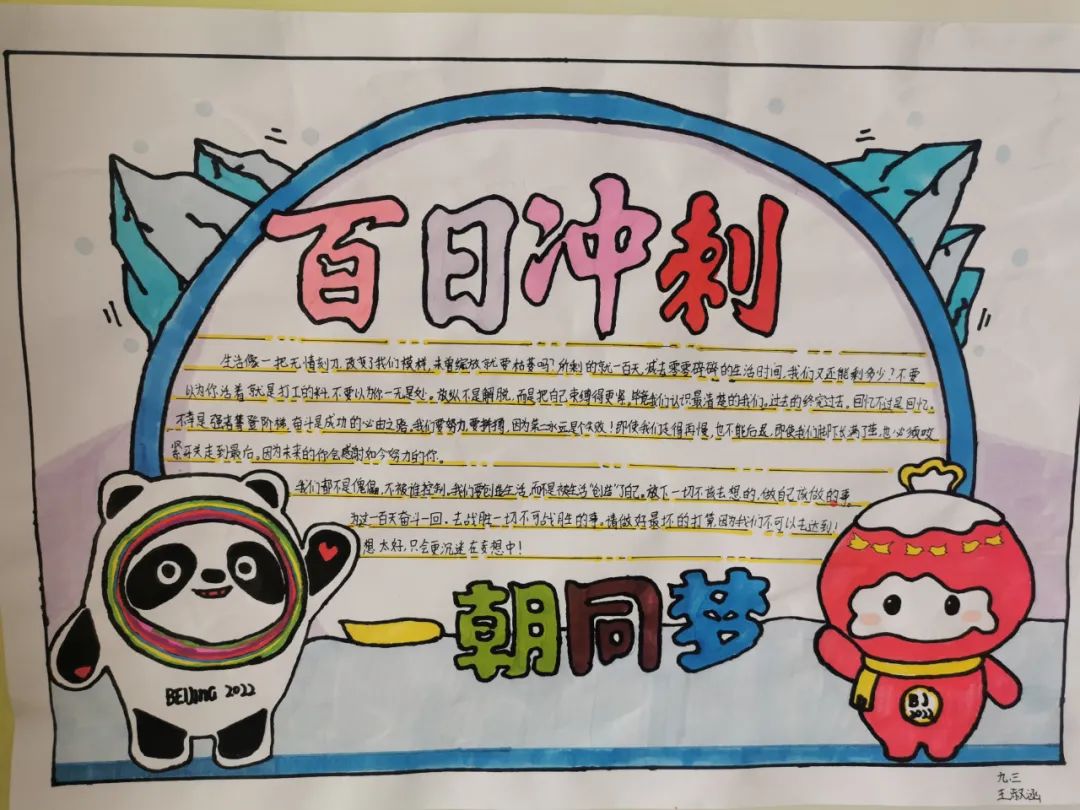 百日冲刺
生活像一把无情刻刀,改变了我们模样,未曾绽放就要枯萎吗?所剩的就一百天,减去零零碎碎的生活时间,我们又还能剩多少?不要
以为你活着就是打工的料,不要以为你一无是处。放纵不是解脱,而是把自己束缚得更紧。我们认识最清楚的我们。过去的终究过去。回忆不过是回忆。
不幸是强者攀登阶梯,奋斗是成功的必由之路。我们要努力,要拼搏,因为第一永远是个失败!即使我们走得再慢,也不能后退,即使我们脚下长满了茧,也必须咬
紧牙关走到最后。因为未来的你会感谢如今努力的你。
我们都不是傀儡,不被谁控制。我们要创造生活,而不是被生活“创造”了自己。放下一切不该去想的,做自己该做的事。
为过一百天奋斗一回,去战胜一切不可战胜的事。请做好最坏的打算,因为我们不可以去达到!
想太好,只会更沉迷在妄想中!
一朝同梦
BEIJING 2022
BJ
2022
九.三
王淑涵